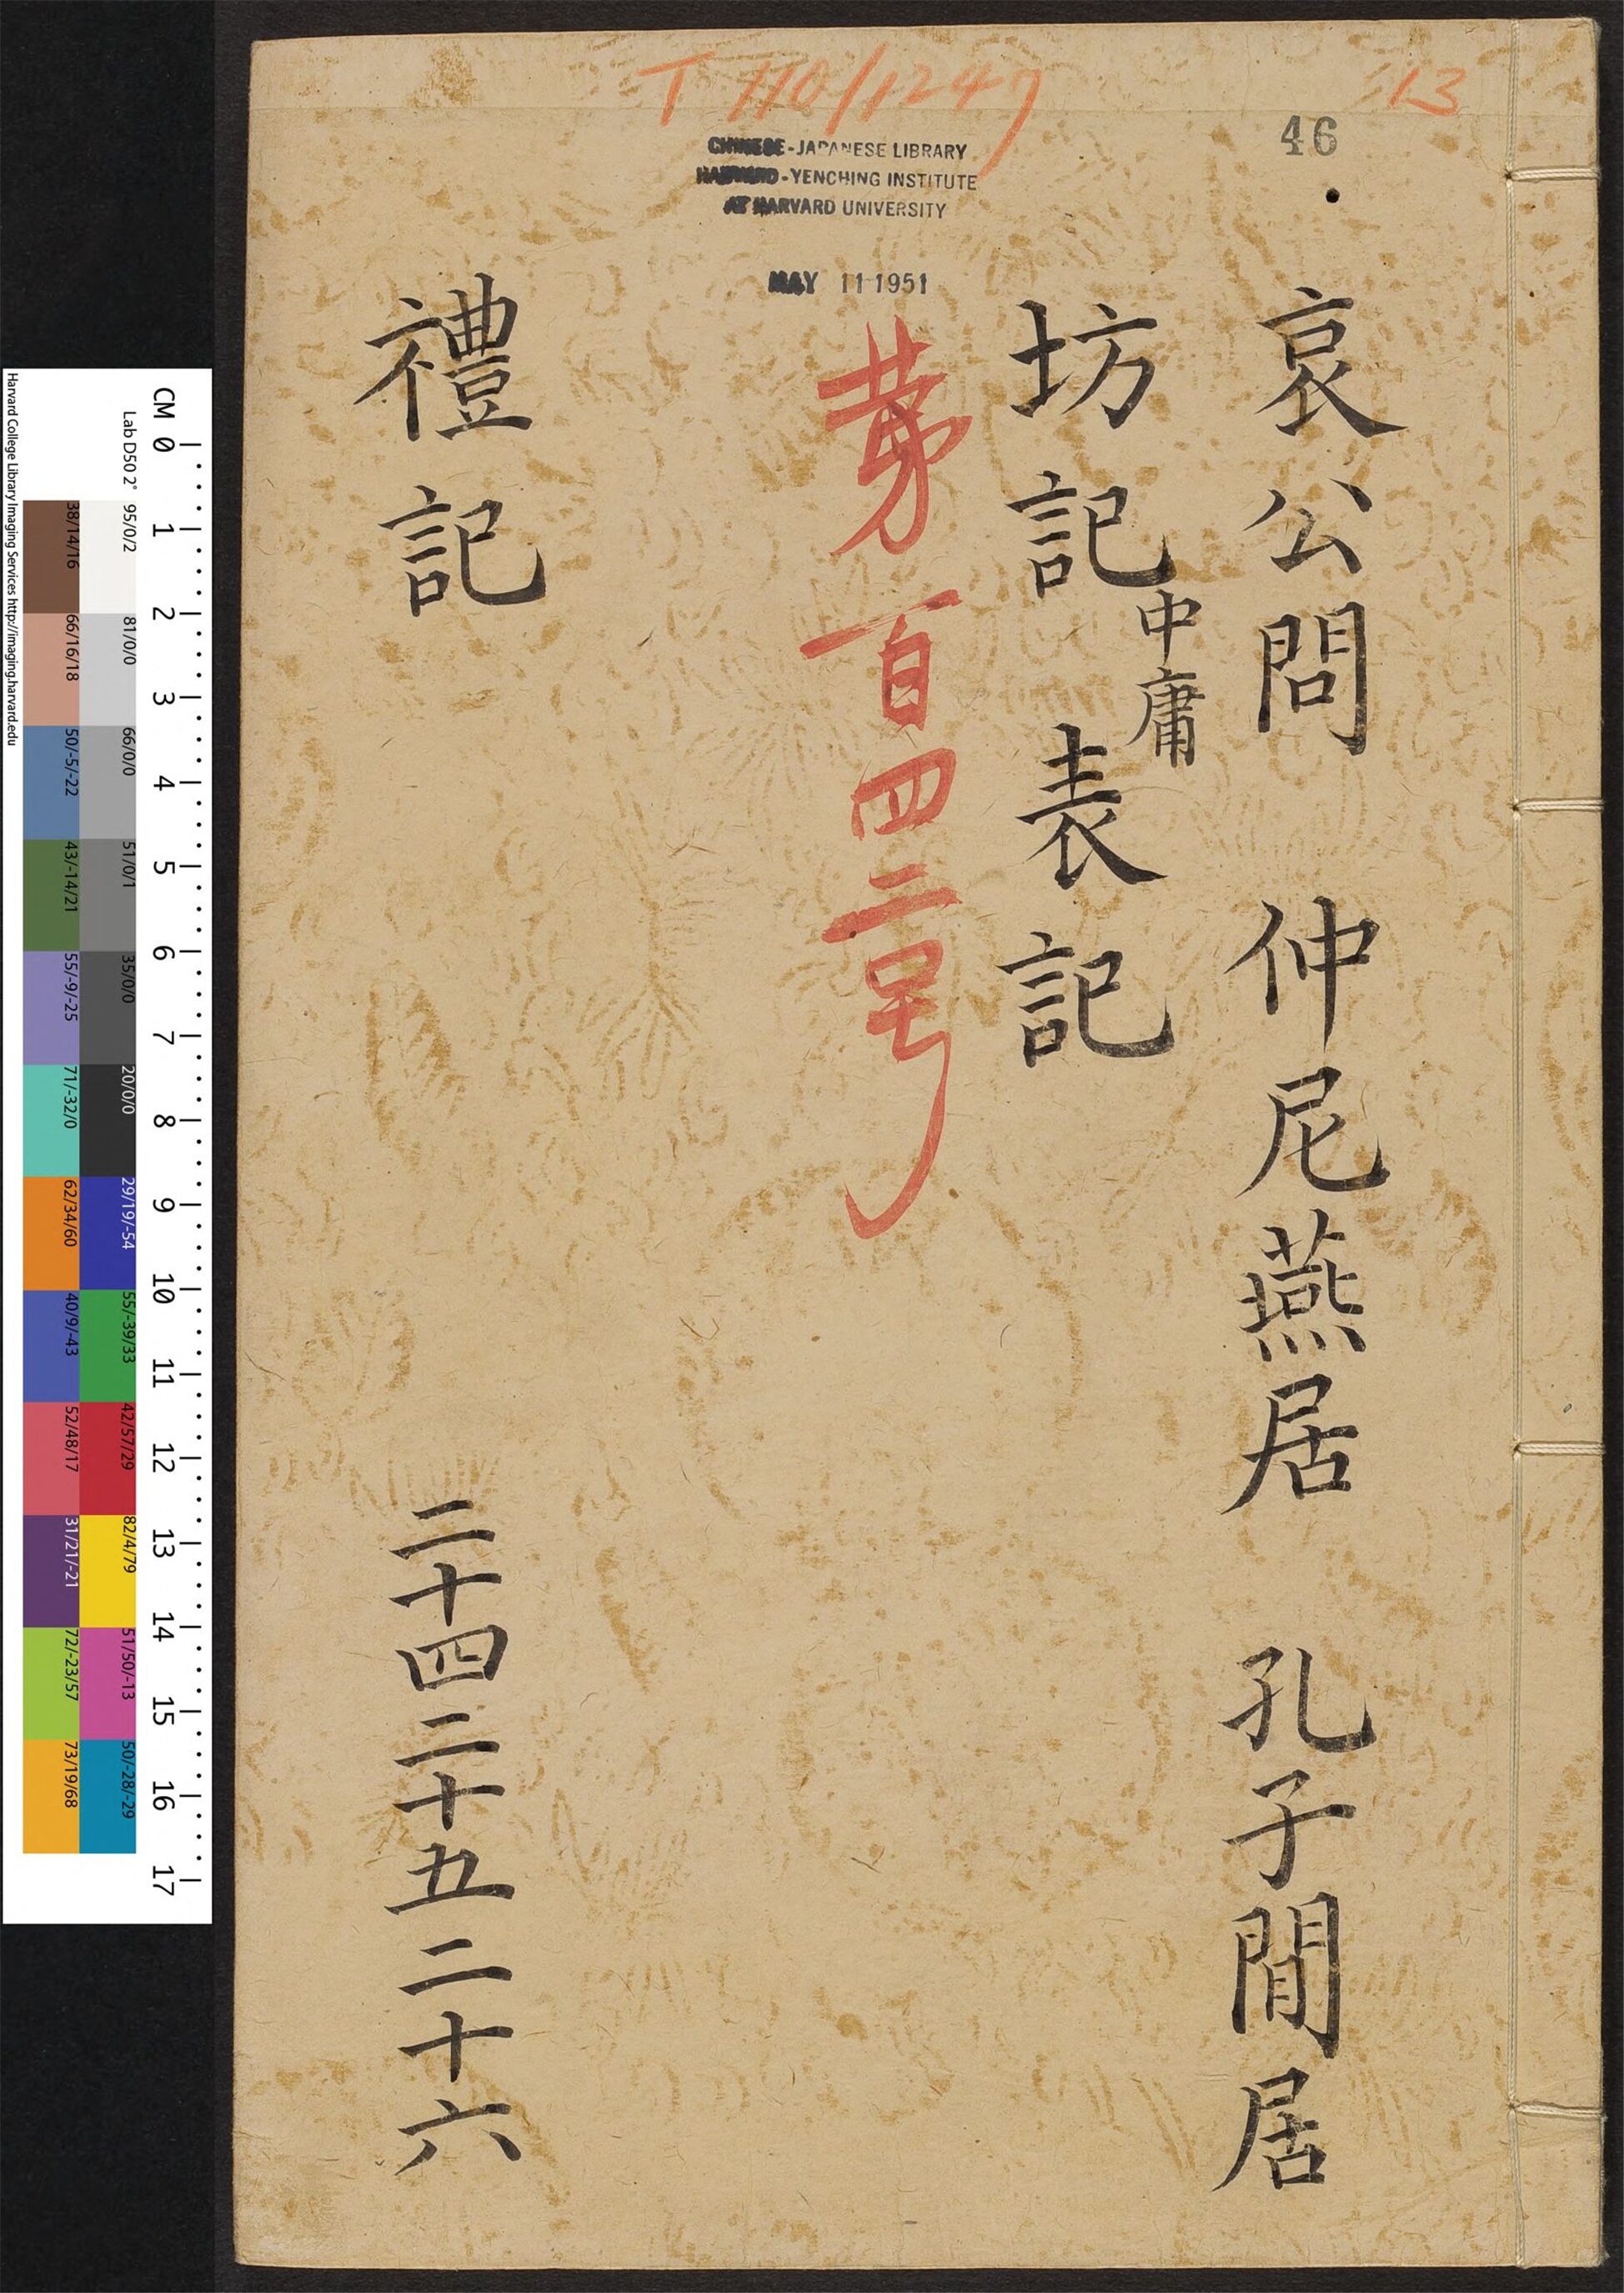 T 110/1247
13
46
CHINESE-JAPANESE LIBRARY
HARVARD-YENCHING INSTITUTE
AT HARVARD UNIVERSITY
MAY 11 1951
哀公問 仲尼燕居 孔子閒居
坊記中庸表記
第百四二号
禮記 二十四二十五二十六
CM 0 1 2 3 4 5 6 7 8 9 10 11 12 13 14 15 16 17
Lab D50 2° 95/0/2 81/0/0 66/0/0 51/0/1 35/0/0 20/0/0 29/19/-54 55/-39/33 42/57/29 82/4/79 51/50/-13 50/-28/-29
38/14/16 66/16/18 50/-5/-22 43/-14/21 55/-9/-25 71/-32/0 62/34/60 40/9/-43 52/48/17 31/21/-21 72/-23/57 73/19/68
Harvard College Library Imaging Services http://imaging.harvard.edu